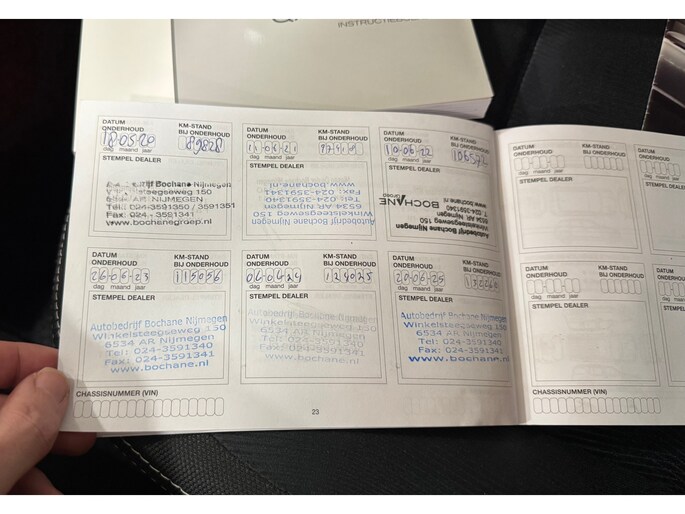 INSTRUCTIEBOEK
DATUM ONDERHOUD
KM-STAND BIJ ONDERHOUD
18-05-20
89828
dag maand jaar
STEMPEL DEALER
Bochane Nijmegen
Winkelsteegseweg 150
6534 AR NIJMEGEN
Tel.: 024-3591350 / 3591351
Fax: 024 - 3591341
www.bochanegroep.nl
DATUM ONDERHOUD
KM-STAND BIJ ONDERHOUD
dag maand jaar
STEMPEL DEALER
Autobedrijf Bochane Nijmegen
Winkelsteegseweg 150
6534 AR Nijmegen
Tel: 024-3591340
Fax: 024-3591341
www.bochane.nl
DATUM ONDERHOUD
KM-STAND BIJ ONDERHOUD
10-06-22
dag maand jaar
STEMPEL DEALER
BOCHANE
GROEP
Autobedrijf Bochane Nijmegen
Winkelsteegseweg 150
6534 AR Nijmegen
T. 024-3591340
www.bochane.nl
DATUM ONDERHOUD
KM-STAND BIJ ONDERHOUD
26-06-23
115056
dag maand jaar
STEMPEL DEALER
Autobedrijf Bochane Nijmegen
Winkelsteegseweg 150
6534 AR Nijmegen
Tel: 024-3591340
Fax: 024-3591341
www.bochane.nl
DATUM ONDERHOUD
KM-STAND BIJ ONDERHOUD
04-04-24
124025
dag maand jaar
STEMPEL DEALER
Autobedrijf Bochane Nijmegen
Winkelsteegseweg 150
6534 AR Nijmegen
Tel: 024-3591340
Fax: 024-3591341
www.bochane.nl
DATUM ONDERHOUD
KM-STAND BIJ ONDERHOUD
20-06-25
dag maand jaar
STEMPEL DEALER
Autobedrijf Bochane Nijmegen
Winkelsteegseweg 150
6534 AR Nijmegen
Tel: 024-3591340
Fax: 024-3591341
www.bochane.nl
CHASSISNUMMER (VIN)
23
DATUM ONDERHOUD
KM-STAND BIJ ONDERHOUD
dag maand jaar
STEMPEL DEALER
DATUM ONDERHOUD
dag maand
STEMPEL DEALER
DATUM ONDERHOUD
KM-STAND BIJ ONDERHOUD
dag maand jaar
STEMPEL DEALER
DATUM ONDERHOUD
STEMPEL
CHASSISNUMMER (VIN)